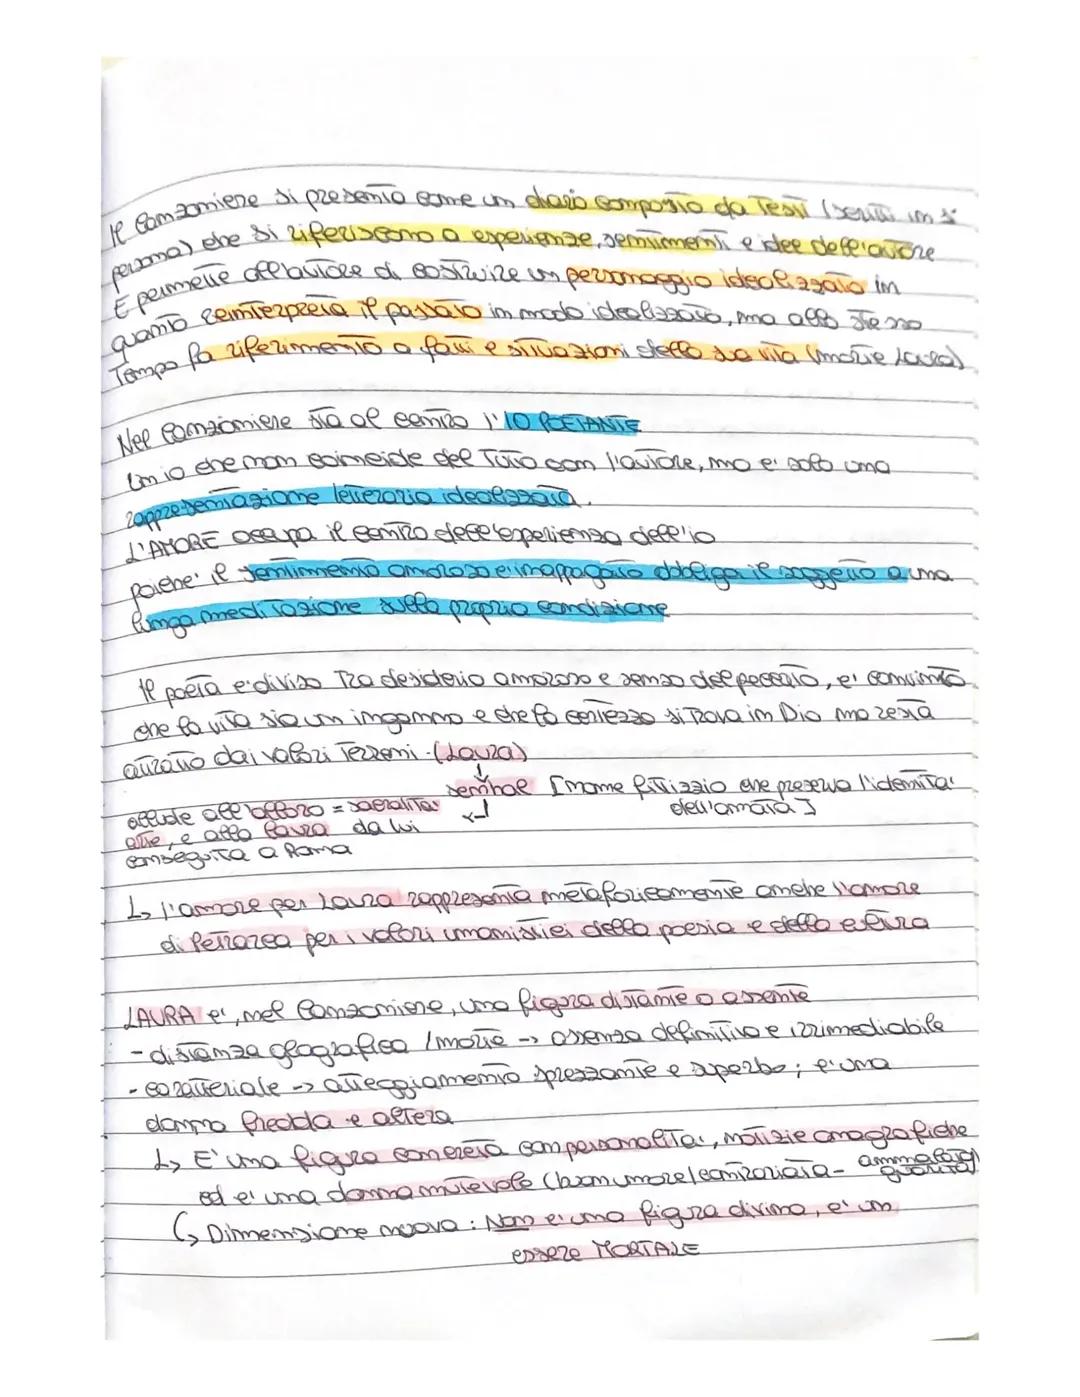 Il Canzoniere si presenta come un diario composto da testi (scritti in 1°
persona) che si riferiscono a esperienze, sentimenti e idee dell'autore
E permette all'autore di costruire un personaggio idealizzato in
quanto reinterpreta il passato in modo idealizzato, ma allo stesso
Tempo fa riferimento a fatti e situazioni della sua vita (morte Laura)
Nel Canzoniere sta al centro l'IO POETANTE
Un io che non coincide del Tutto con l'autore, ma e' solo una
rappresentazione letteraria idealizzata.
L'AMORE occupa il centro dell'esperienza dell'io
poiche' il sentimento amoroso e inappagato obbliga il soggetto a una
lunga meditazione sulla propria condizione
Il poeta e' diviso Tra desiderio amoroso e senso del peccato, e' convinto
che la vita sia un inganno e che la certezza si trova in Dio ma resta
attratto dai valori Terreni. (Laura)
senhal [nome fittizio che preserva l'identita'
allude all'alloro = sacralita' dell'amata]
arte, e alla laurea da lui
conseguita a Roma
↳ l'amore per Laura rappresenta metaforicamente anche l'amore
di Petrarca per i valori umanistici della poesia e della cultura
LAURA e', nel Canzoniere, una figura distante o assente
- distanza geografica / morte -> assenza definitiva e irrimediabile
- caratteriale -> atteggiamento sprezzante e superbo; e' una
donna fredda e altera
↳ E' una figura concreta con personalita', notizie anagrafiche
ed e' una donna mutevole (buon umore/contrariata - ammalata/
guarita)
↳ Dimensione nuova: Non e' una figura divina, e' un
essere MORTALE